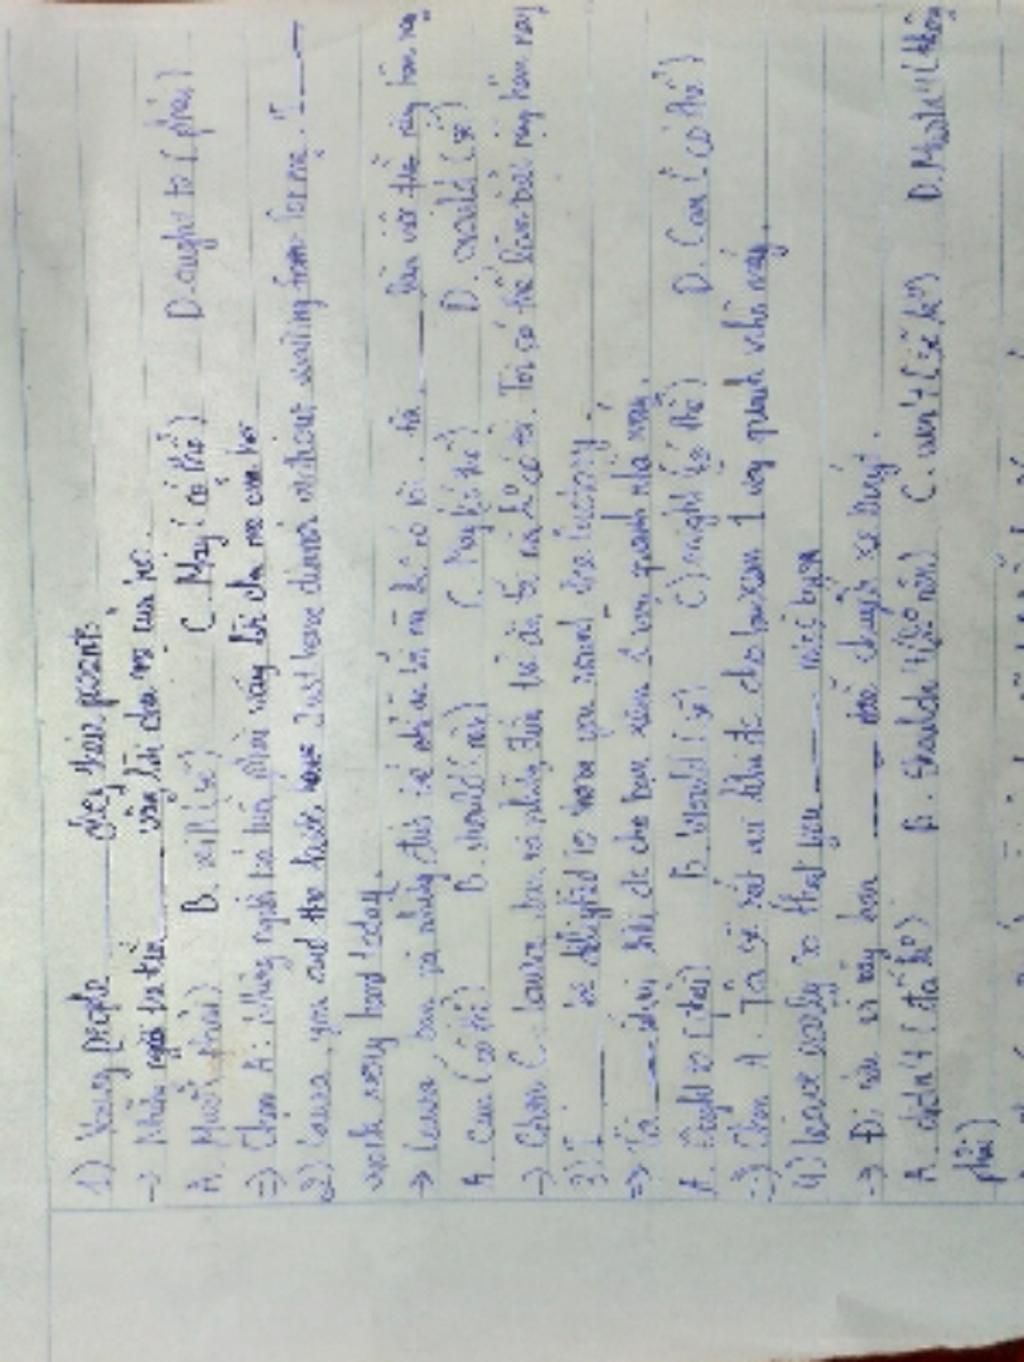 1) Young people ______ obey their parents
→ Những người trẻ tuổi ______ vâng lời cha mẹ của họ.
A. Must (phải) B. will (sẽ) C. May (có thể) D. ought to (phải)
=> Chọn A: Những người trẻ tuổi phải vâng lời cha mẹ của họ
2) Laura, you and the kids Just have dinner without waiting from for me. I ____
work very hard today.
→ Laura, bạn và những đứa trẻ ăn tối mà không có tôi. tôi ______ làm việc này hôm nay
A. Can (có thể) B. should (nên) C. May (có thể) D. would (sẽ)
→ Chọn C: Laura, bạn và những đứa trẻ ăn tối mà ko có tôi. Tôi có thể làm này hôm nay
3) I ______ be delighted to show you round the factory.
=> Tôi ____ hài đc cho bạn xem 1 vòng quanh nhà máy.
A. Might to (phải) B. Would (sẽ) C) might (có thể) D. Can (có thể)
=> Chọn A. Tôi sẽ rất vui khi đc cho bạn xem 1 vòng quanh nhà máy.
4) Leave early so that you ____ miss bus
→ Đi bạn ______ chuyến xe buýt.
A. didn't (đã ko) B. Shouldn't (ko nên) C. won't (sẽ ko) D. Mustn't (không
phải)